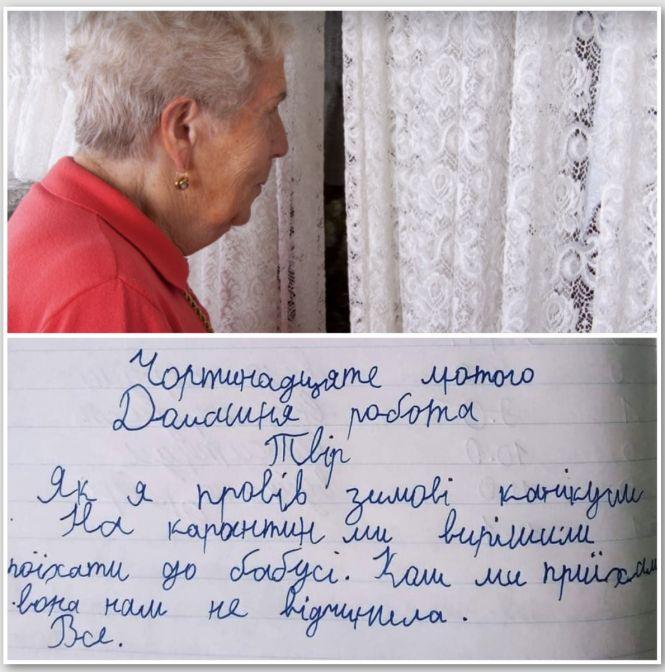 Чортинадцяте лютого
Домашня робота
Твір
Як я провів зимові канікули
На карантин ми вирішили
поїхати до бабусі. Коли ми приїхали
вона нам не відчинила.
Все.